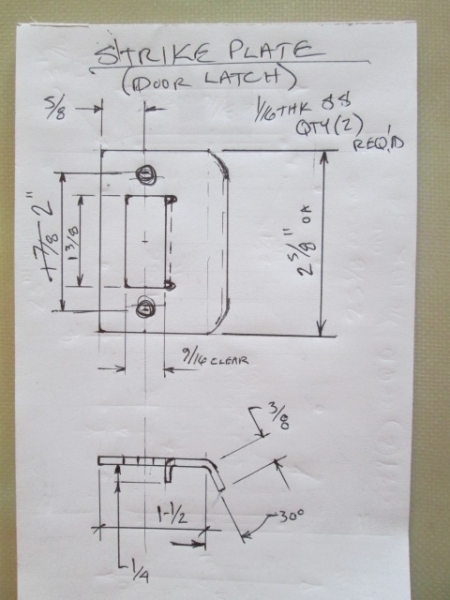 STRIKE PLATE
(DOOR LATCH)
5/8
1/16 THK SS
QTY (2)
REQ'D
1 7/8 2"
1 3/8
2 5/8" OA
9/16 CLEAR
3/8
1-1/2
30°
1/4